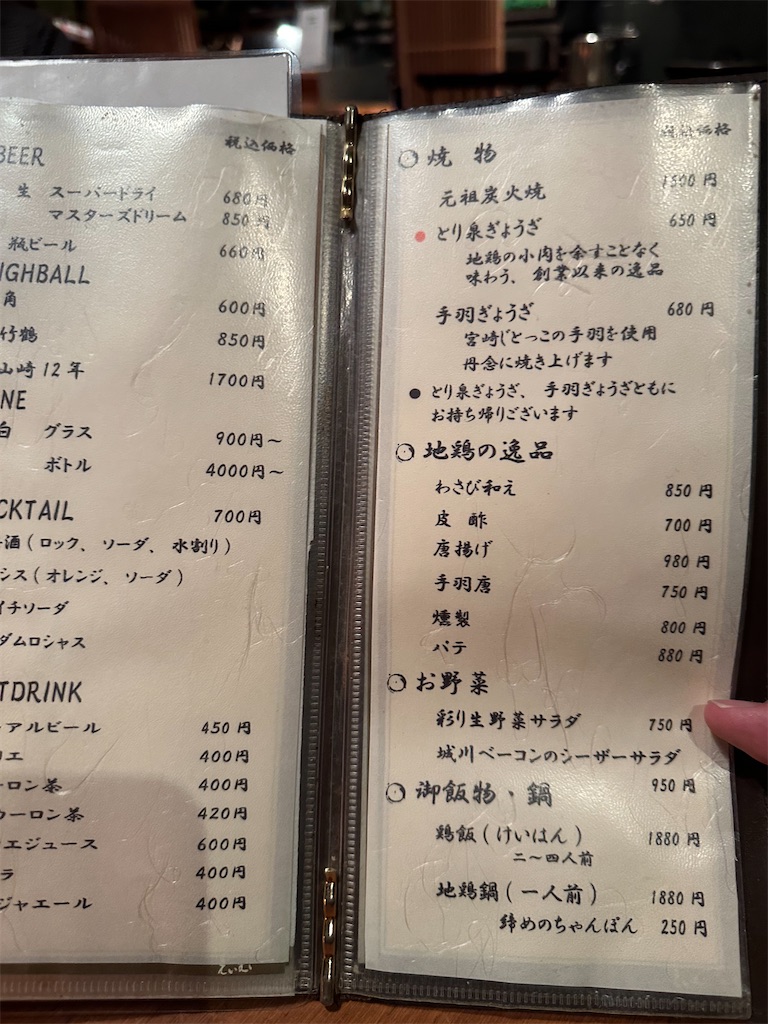 BEER
税込価格
生 スーパードライ 680円
マスターズドリーム 850円
瓶ビール 660円
IGHBALL
角 600円
竹鶴 850円
山崎12年 1700円
INE
白 グラス 900円～
ボトル 4000円～
CKTAIL 700円
酒(ロック、ソーダ、水割り)
シス(オレンジ、ソーダ)
イチソーダ
ダムロシャス
TDRINK
ーアルビール 450円
コエ 400円
ーロン茶 400円
ウーロン茶 420円
コエジュース 600円
ラ 400円
ジャエール 400円
税込価格
焼 物
元祖炭火焼 1500円
とり泉ぎょうざ 650円
地鶏の小肉を余すことなく
味わう、創業以来の逸品
手羽ぎょうざ 680円
宮崎じとっこの手羽を使用
丹念に焼き上げます
●とり泉ぎょうざ、手羽ぎょうざともに
お持ち帰りございます
地鶏の逸品
わさび和え 850円
皮 酢 700円
唐揚げ 980円
手羽唐 750円
燻製 800円
パテ 880円
お野菜
彩り生野菜サラダ 750円
城川ベーコンのシーザーサラダ
950円
御飯物・鍋
鶏飯(けいはん) 1880円
二～四人前
地鶏鍋(一人前) 1880円
締めのちゃんぽん 250円